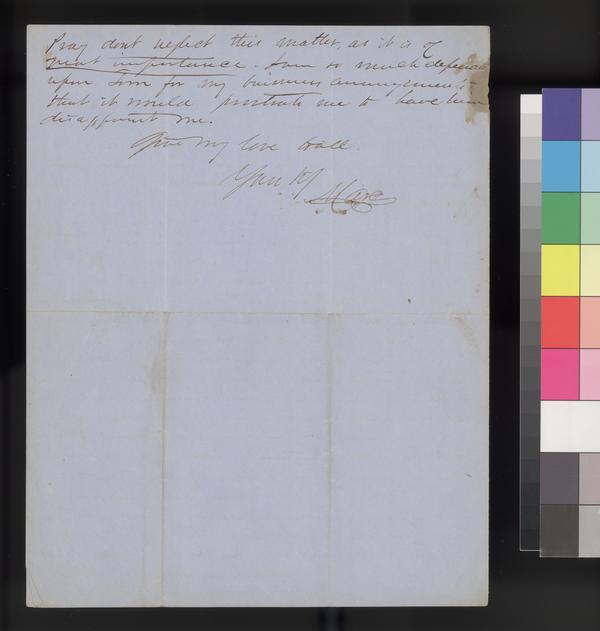 Pray dont neglect this matter, as it is of
great importance. I am so much depend
upon Tom for my business arrangements
that it would prostrate me to have him
disappoint me.
Give my love to all.
Yours Affy